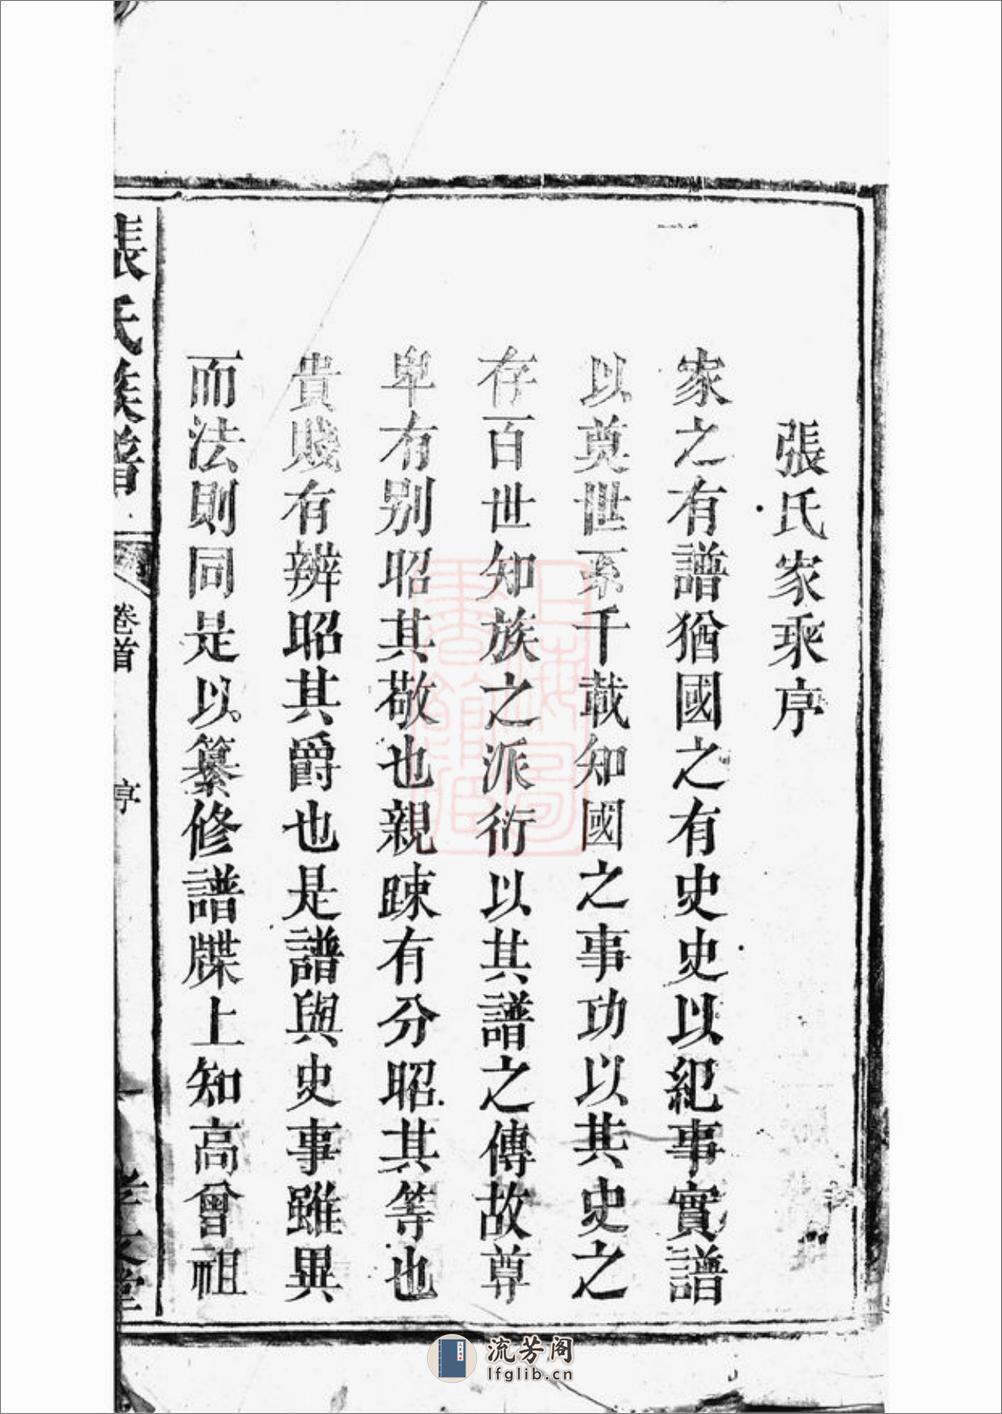 張氏家乘序
家之有譜猶國之有史史以紀事實譜
以奠世系千載知國之事功以其史之
存百世知族之派衍以其譜之傳故尊
卑有別昭其敬也親踈有分昭其等也
貴賤有辨昭其爵也是譜與史事雖異
而法則同是以纂修譜牒上知高曾祖
張氏族譜
卷首
序
一
上海圖書館藏
流芳阁
lfglib.cn